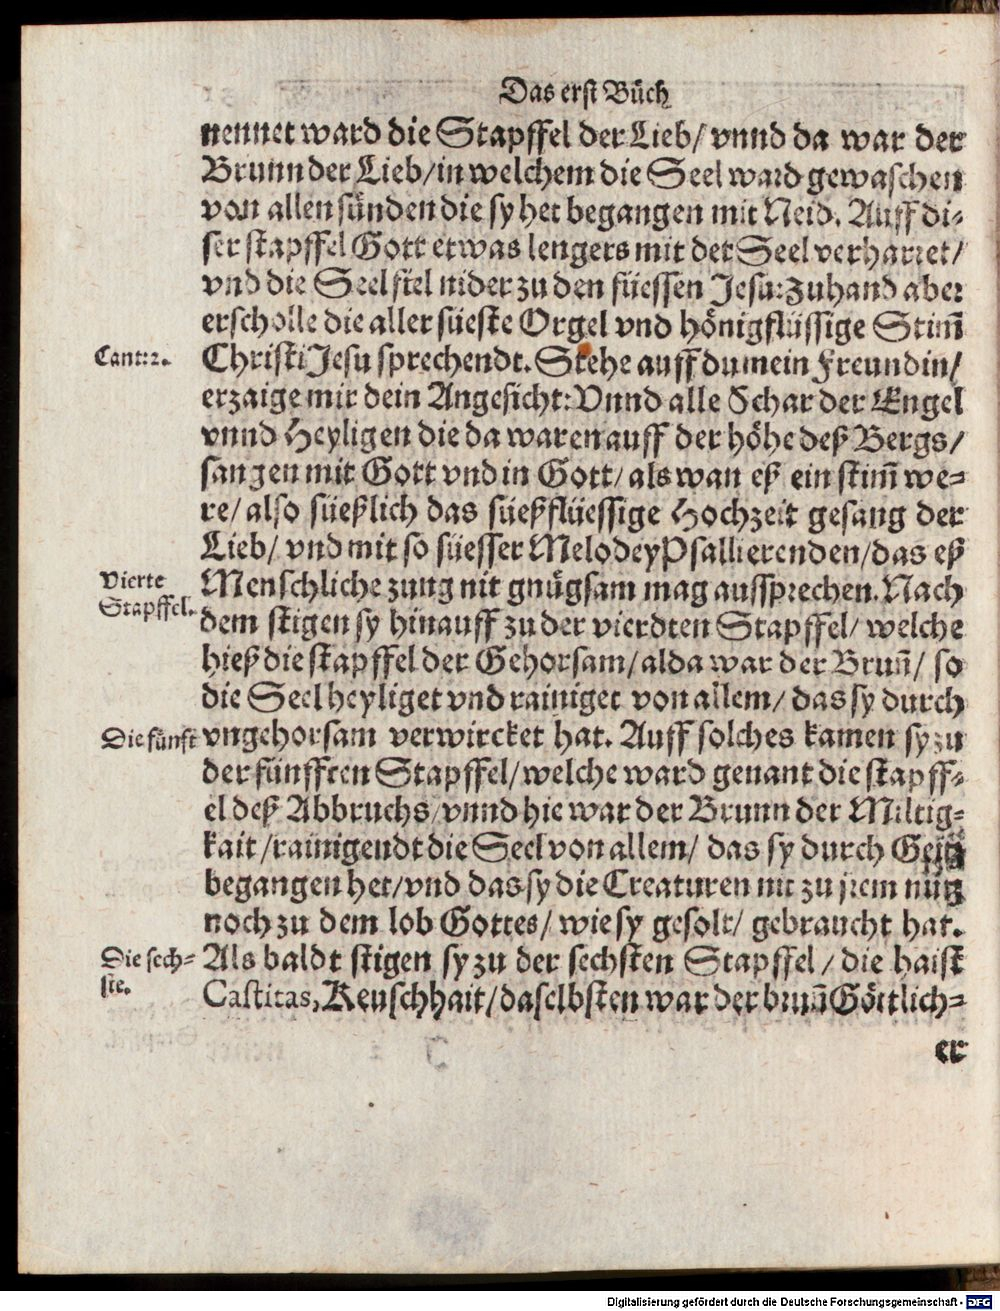 Das erst Bůch
nennet ward die Stapffel der Lieb/ vnnd da war der
Brunn der Lieb/ in welchem die Seel ward gewaschen
von allen sünden die sy het begangen mit Neid. Auff di-
ser stapffel Gott etwas lengers mit der Seel verharret/
vnd die Seel fiel nider zu den füessen Jesu: zuhand aber
erscholle die aller süeste Orgel vnd hönigflüssige Stim̃
Cant: 2.
Christi Jesu sprechendt. Stehe auff du mein Freundin/
erzaige mir dein Angesicht: Vnnd alle Schar der Engel
vnnd Heyligen die da waren auff der höhe deß Bergs/
sangen mit Gott vnd in Gott/ als wan eß ein stim̃ we-
re/ also süeßlich das süeßflüessige Hochzeit gesang der
Lieb/ vnd mit so süesser Melodey Psallierenden/ das eß
Vierte
Stapffel.
Menschliche zung nit gnůgsam mag aussprechen. Nach
dem stigen sy hinauff zu der vierdten Stapffel/ welche
hieß die stapffel der Gehorsam/ alda war der Brun̄/ so
die Seel heyliget vnd rainiget von allem/ das sy durch
Die fünft
vngehorsam verwircket hat. Auff solches kamen sy zu
der fünfften Stapffel/ welche ward genant die stapff-
el deß Abbruchs/ vnnd hie war der Brunn der Miltig-
kait/ rainigendt die Seel von allem/ das sy durch Geitz
begangen het/ vnd das sy die Creaturen nit zu jrem nutz
noch zu dem lob Gottes/ wie sy gesolt/ gebraucht hat.
Die sech-
ste.
Als baldt stigen sy zu der sechsten Stapffel/ die haist
Castitas, Keuschhait/ daselbsten war der brun̄ Göttlich-
er
Digitalisierung gefördert durch die Deutsche Forschungsgemeinschaft - DFG